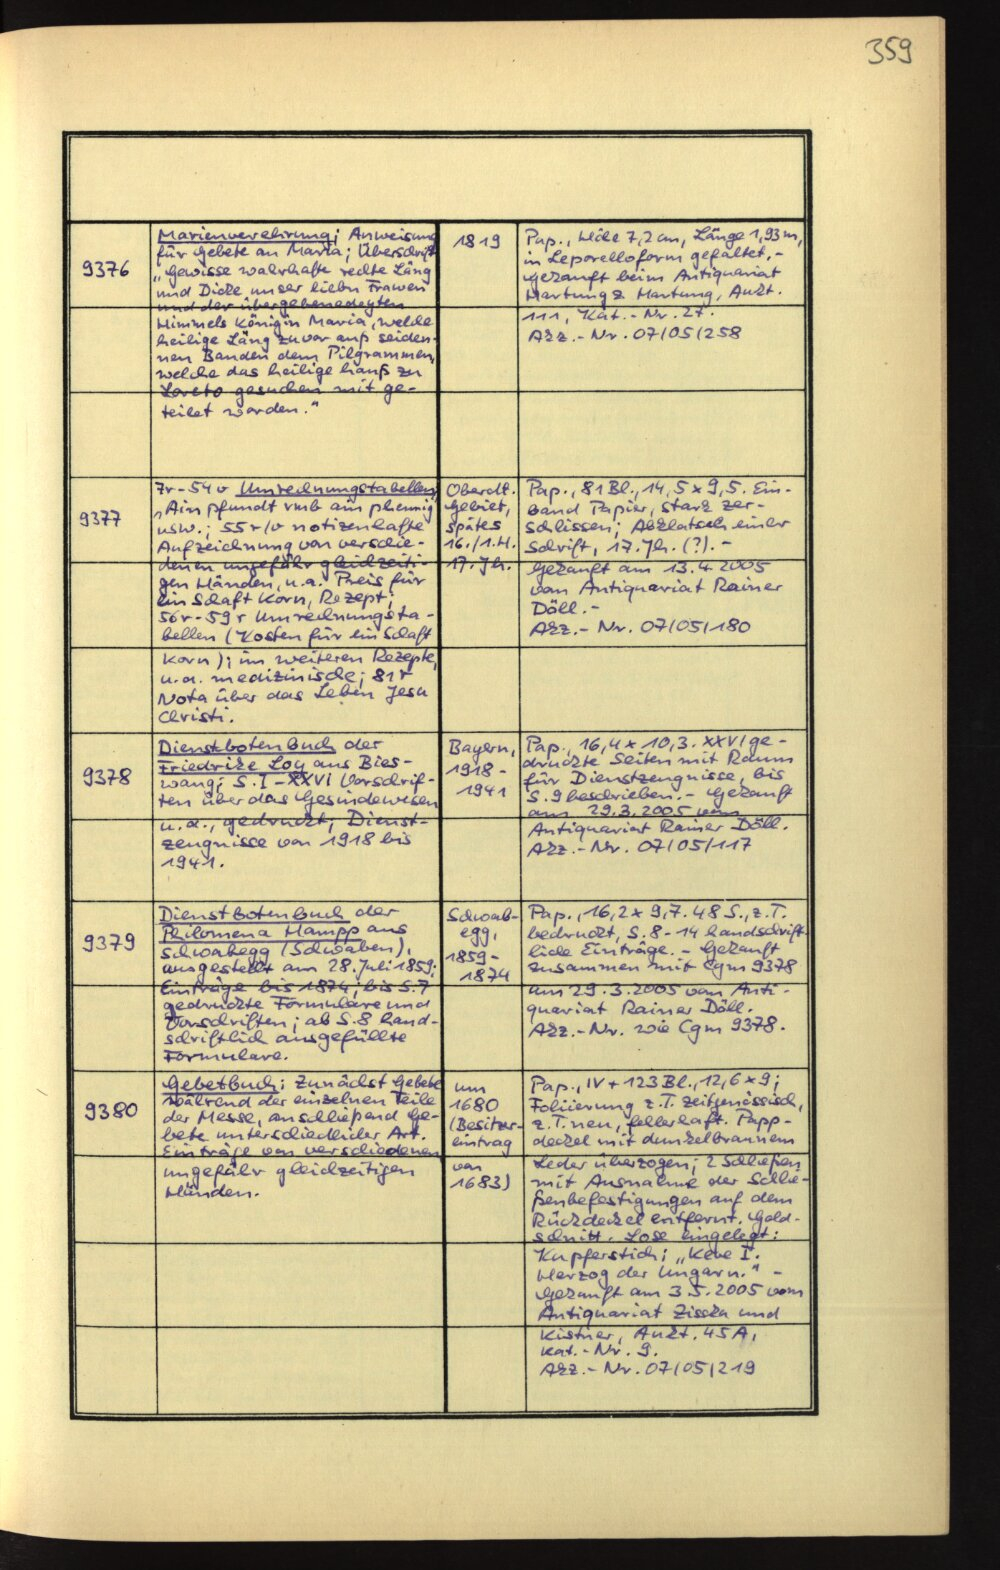 359
9376
Marienverehrung; Anweisung
für Gebete an Maria; Überschrift
„Gewisse wahrhafte rechte Läng
und Dicke unser lieben Frawen
und der übergebenedeyten
Himmels Königin Maria, welche
heilige Läng zuvor auß seiden-
nen Banden dem Pilgrammen,
welche das heilige hauß zu
Loreto gesuchen mit ge-
teilet worden."
1819
Pap., Höhe 7,2 cm, Länge 1,93 m,
in Leporelloform gefaltet.-
Gekauft beim Antiquariat
Hartung & Hartung, Aukt.
111, Kat.-Nr. 27.
Akz.-Nr. 07/05/258
9377
7r-54v Umrechnungstabellen
„Ain pfundt vmb ain phennig"
usw.; 55r/v notizenhafte
Aufzeichnung von verschie-
denen ungefähr gleichzeiti-
gen Händen, u.a. Preis für
ein Schaft Korn, Rezept;
56r-59r Umrechnungsta-
bellen (Kosten für ein Schaft
Korn); im weiteren Rezepte,
u.a. medizinische; 81r
Nota über das Leben Jesu
Christi.
Oberdt.
Gebiet,
spätes
16./1.H.
17. Jh.
Pap., 81 Bl., 14,5 x 9,5. Ein-
band Papier, stark zer-
schlissen; Abklatsch einer
Schrift, 17. Jh. (?). -
Gekauft am 13.4.2005
vom Antiquariat Rainer
Döll.-
Akz.-Nr. 07/05/180
9378
Dienstbotenbuch der
Friedrike Loy aus Bies-
wang; S. I-XXVI Vorschrif-
ten über das Gesindewesen
u.a., gedruckt; Dienst-
zeugnisse von 1918 bis
1941.
Bayern,
1918-
1941
Pap., 16,4 x 10,3. XXVI ge-
druckte Seiten mit Raum
für Dienstzeugnisse, bis
S. 9 beschrieben.- Gekauft
am 29.3.2005 vom
Antiquariat Rainer Döll.
Akz.-Nr. 07/05/117
9379
Dienstbotenbuch der
Philomena Hampp aus
Schwabegg (Schwaben),
ausgestellt am 28. Juli 1859;
Einträge bis 1874; bis S. 7
gedruckte Formulare und
Vorschriften; ab S. 8 hand-
schriftlich ausgefüllte
Formulare.
Schwab-
egg,
1859-
1874
Pap., 16,2 x 9,7. 48 S., z.T.
bedruckt, S. 8-14 handschrift-
liche Einträge. - Gekauft
zusammen mit Cgm 9378
am 29.3.2005 vom Anti-
quariat Rainer Döll.
Akz.-Nr. wie Cgm 9378.
9380
Gebetbuch: Zunächst Gebete
während der einzelnen Teile
der Messe, anschließend Ge-
bete unterschiedlicher Art.
Einträge von verschiedenen
ungefähr gleichzeitigen
Händen.
um
1680
(Besitzer-
eintrag
von
1683)
Pap., IV + 123 Bl., 12,6 x 9;
Foliierung z.T. zeitgenössisch,
z.T. neu, fehlerhaft. Papp-
deckel mit dunkelbraunem
Leder überzogen; 2 Schließen
mit Ausnahme der Schlie-
ßenbefestigungen auf dem
Rückdeckel entfernt. Gold-
schnitt. Lose eingelegt:
Kupferstich; „Keve I.
Herzog der Ungarn." -
Gekauft am 3.5.2005 vom
Antiquariat Zisska und
Kistner, Aukt. 45 A,
Kat.-Nr. 9.
Akz.-Nr. 07/05/219